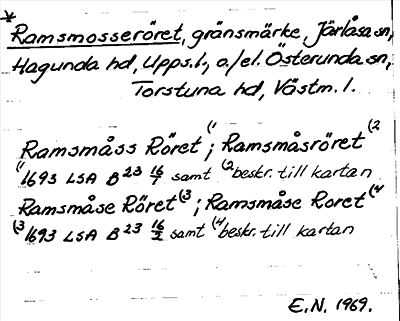 * Ramsmosseröret, gränsmärke, Järlåsa sn,
Hagunda hd, Upps.l., o./el. Österunda sn,
Torstuna hd, Västm. l.
Ramsmåss Röret (1; Ramsmåsröret (2
(1 1693 LSA B 23 16/7 samt (2 beskr. till kartan
Ramsmåse Röret (3; Ramsmåse Roret (4
(3 1693 LSA B 23 16/2 samt (4 beskr. till kartan
E.N. 1969.